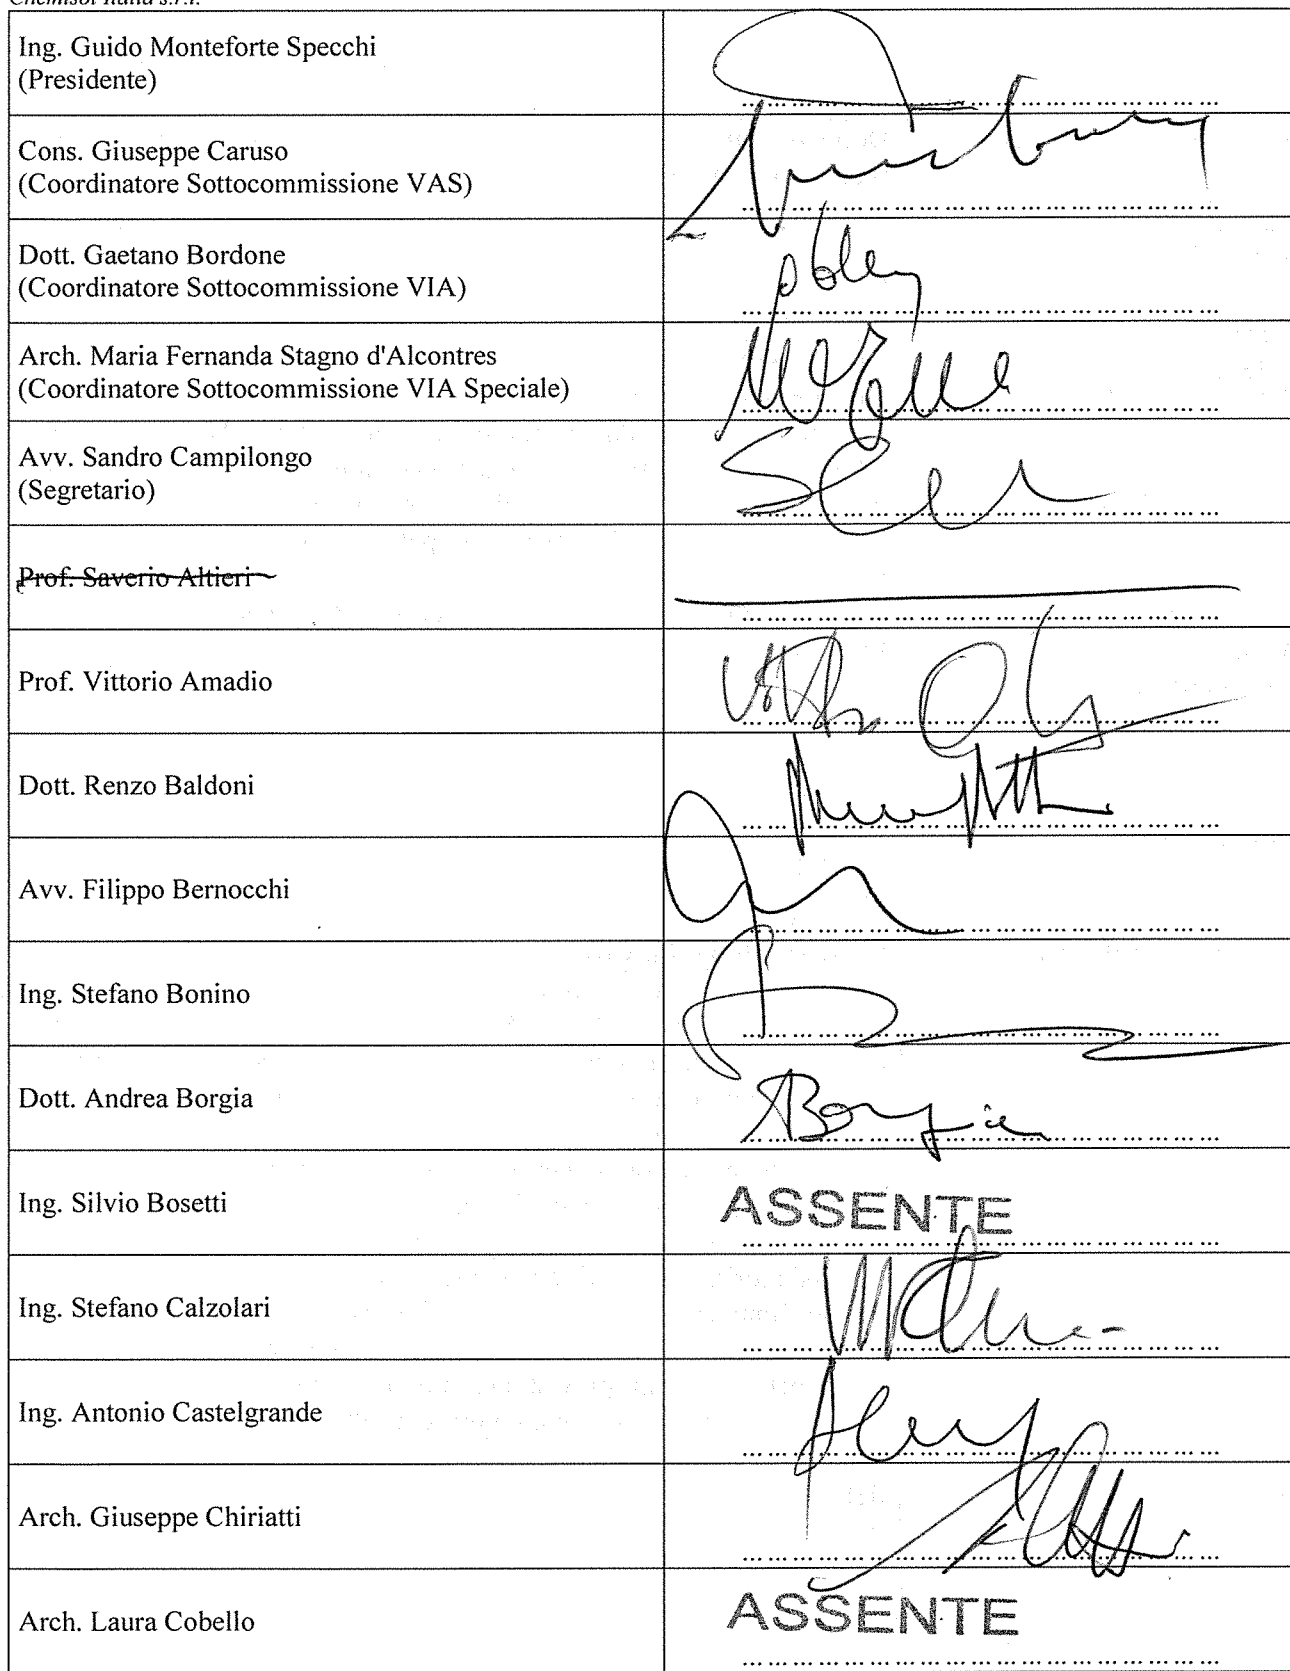 Chemisol Italia s.r.l.
Ing. Guido Monteforte Specchi
(Presidente)
Cons. Giuseppe Caruso
(Coordinatore Sottocommissione VAS)
Dott. Gaetano Bordone
(Coordinatore Sottocommissione VIA)
Arch. Maria Fernanda Stagno d'Alcontres
(Coordinatore Sottocommissione VIA Speciale)
Avv. Sandro Campilongo
(Segretario)
Prof. Saverio Altieri
Prof. Vittorio Amadio
Dott. Renzo Baldoni
Avv. Filippo Bernocchi
Ing. Stefano Bonino
Dott. Andrea Borgia
ABorgia
Ing. Silvio Bosetti
ASSENTE
Ing. Stefano Calzolari
Ing. Antonio Castelgrande
Arch. Giuseppe Chiriatti
Arch. Laura Cobello
ASSENTE